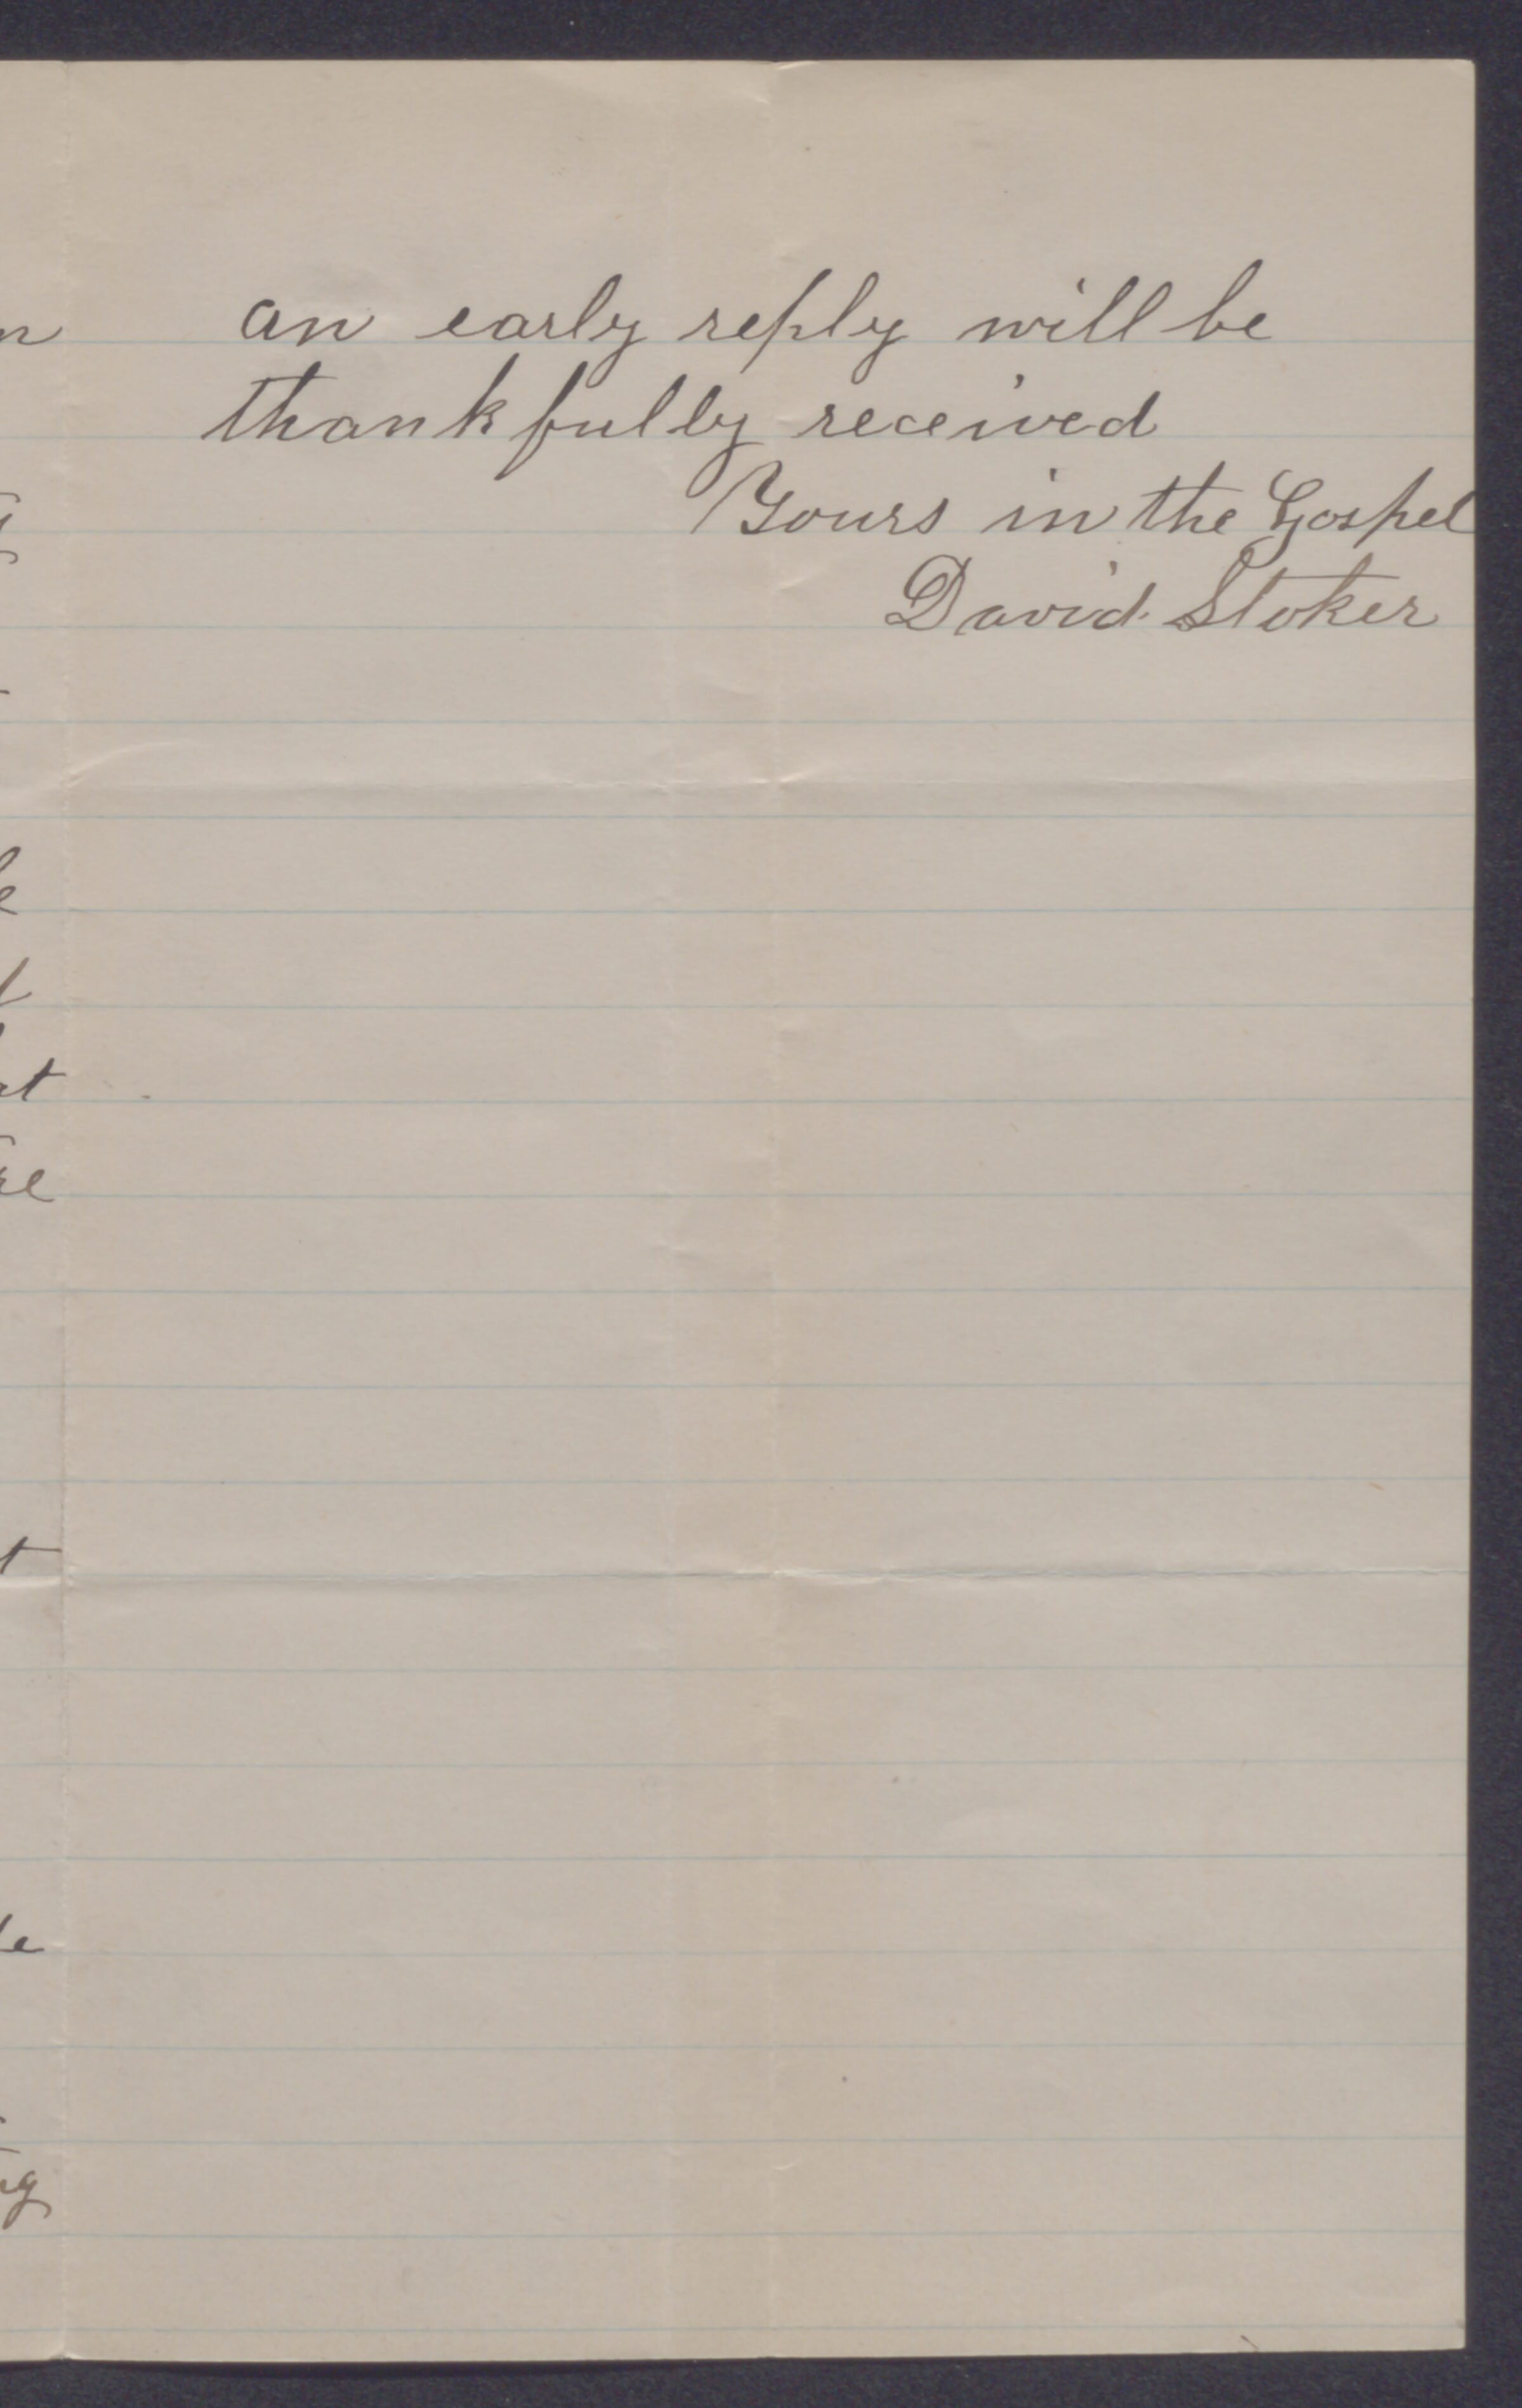 an early reply will be
thankfully received
Yours in the Gospel
David Stoker